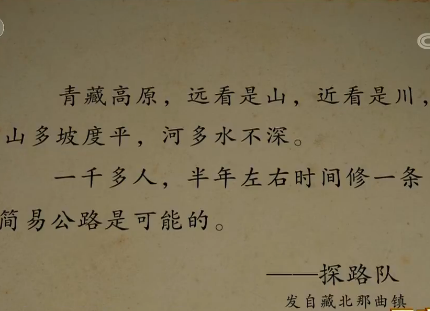 青藏高原，远看是山，近看是川，
山多坡度平，河多水不深。
一千多人，半年左右时间修一条
简易公路是可能的。
——探路队
发自藏北那曲镇